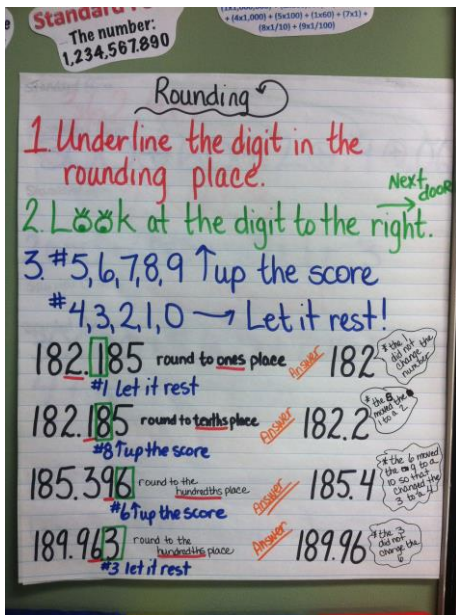 Standard
The number:
1,234,567.890
+ (4x1,000) + (5x100) + (1x60) + (7x1) +
(8x1/10) + (9x1/100)
Rounding
1. Underline the digit in the
rounding place.
Next door
2. Look at the digit to the right.
3. #5,6,7,8,9 ↑up the score
#4,3,2,1,0 → Let it rest!
182.185 round to ones place Answer 182
*the 1 did not change the number
#1 let it rest
182.185 round to tenths place Answer 182.2
*the 8 moved the 1 to a 2
#8↑up the score
185.396 round to the hundredths place Answer 185.4
*the 6 moved the 9 to a 10 so that changed the 3 to a 4
#6↑up the score
189.963 round to the hundredths place Answer 189.96
*the 3 did not change the 6
#3 let it rest